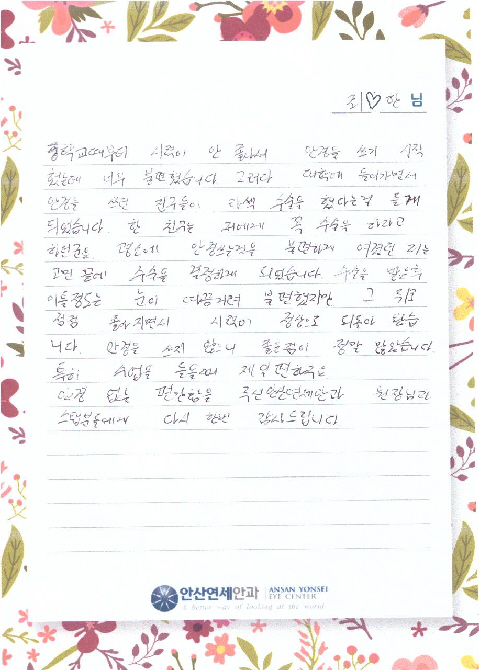 최♡한 님
중학교때부터 시력이 안 좋아서 안경을 쓰기 시작
했는데 너무 불편했습니다 그러다 대학에 들어가면서
안경을 쓰던 친구들이 라섹 수술을 했다는걸 듣게
되었습니다. 한 친구는 저에게 꼭 수술을 하라고
하였는데 평소에 안경쓰는것을 불편하게 여겼던 저는
고민 끝에 수술을 결정하게 되었습니다 수술을 받은후
이틀정도는 눈이 따끔거려 불편했지만 그 뒤로
점점 좋아지면서 시력이 정상으로 되돌아 왔습
니다. 안경을 쓰지 않으니 좋은점이 정말 많았습니다
특히 수업을 들을때 제일 편하
안경 없는 편안함을 주신 안산연세안과 원장님과
스텝분들에게 다시 한번 감사드립니다
안산연세안과 ANSAN YONSEI
EYE CENTER
a better way of looking at the world